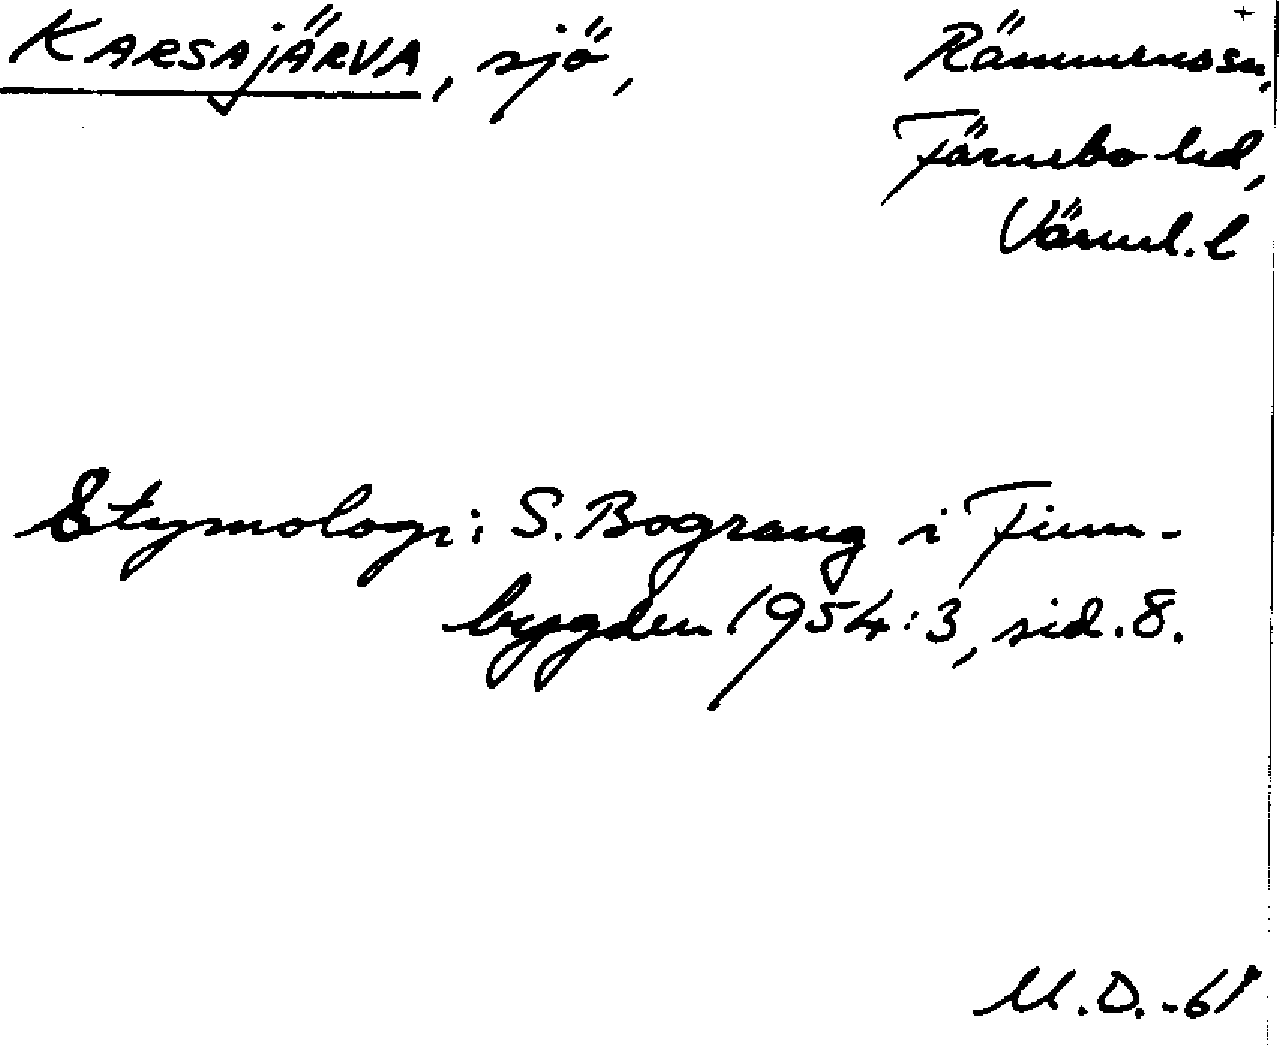 KARSAJÄRVA, sjö, Rämmenosn,
Färnebo hd,
Värml. l
Etymologi: S. Bograng i Finn-
bygden 1954:3, sid. 8.
M.D. -61